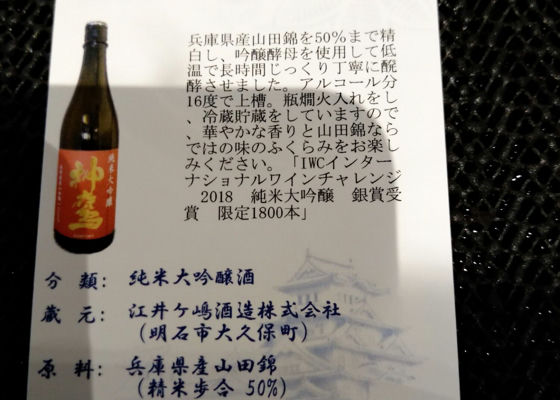 純米大吟醸
神鷹
兵庫県産山田錦を50%まで精
白し、吟醸酵母を使用して低
温で長時間じっくり丁寧に醗
酵させました。アルコール分
16度で上槽。瓶燗火入れをし
、冷蔵貯蔵をしていますので
、華やかな香りと山田錦なら
ではの味のふくらみをお楽し
みください。「IWCインター
ナショナルワインチャレンジ
2018　純米大吟醸　銀賞受
賞　限定1800本」
分　類：純米大吟醸酒
蔵　元：江井ケ嶋酒造株式会社
（明石市大久保町）
原　料：兵庫県産山田錦
（精米歩合 50%）